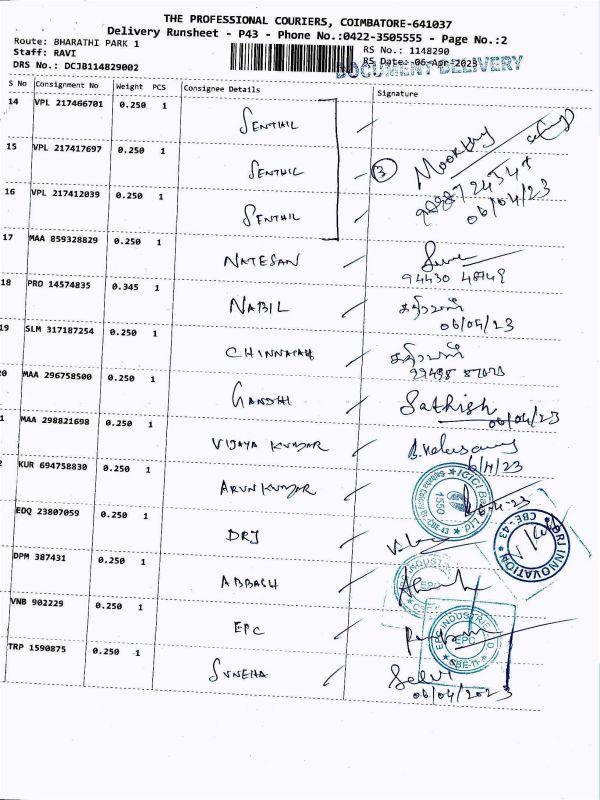 THE PROFESSIONAL COURIERS, COIMBATORE-641037
Delivery Runsheet - P43 - Phone No.:0422-3505555 - Page No.:2
Route: BHARATHI PARK 1
Staff: RAVI
RS No.: 1148290
DRS No.: DCJB114829002
RS Date: 06-Apr-2023
DOCUMENT DELIVERY
S No Consignment No Weight PCS Consignee Details Signature
14 VPL 217466701 0.250 1 SENTHIL
15 VPL 217417697 0.250 1 SENTHIL 3 Moorthy
16 VPL 217412039 0.250 1 SENTHIL 06/04/23
17 MAA 859328829 0.250 1 NATESAN
94430 48949
18 PRO 14574835 0.345 1 NABIL
06/04/23
19 SLM 317187254 0.250 1 CHINNAIAH
20 MAA 296758500 0.250 1 GANDHI Sathish
06/04/23
1 MAA 298821698 0.250 1 VIJAYA KUMAR
6/4/23
2 KUR 694758830 0.250 1 ARUN KUMAR
ICICI Ba
1550
CBE-43
6-4-23
EDQ 23807059 0.250 1 DRJ
DRJ INNOVATION
CBE-43
DPM 387431 0.250 1 ABBASH
EPC
VNB 902229 0.250 1 EPC
EPC INDUSTRI
EPC
CBE-11
TRP 1590875 0.250 1 SUNEHA Selvi
06/04/2023